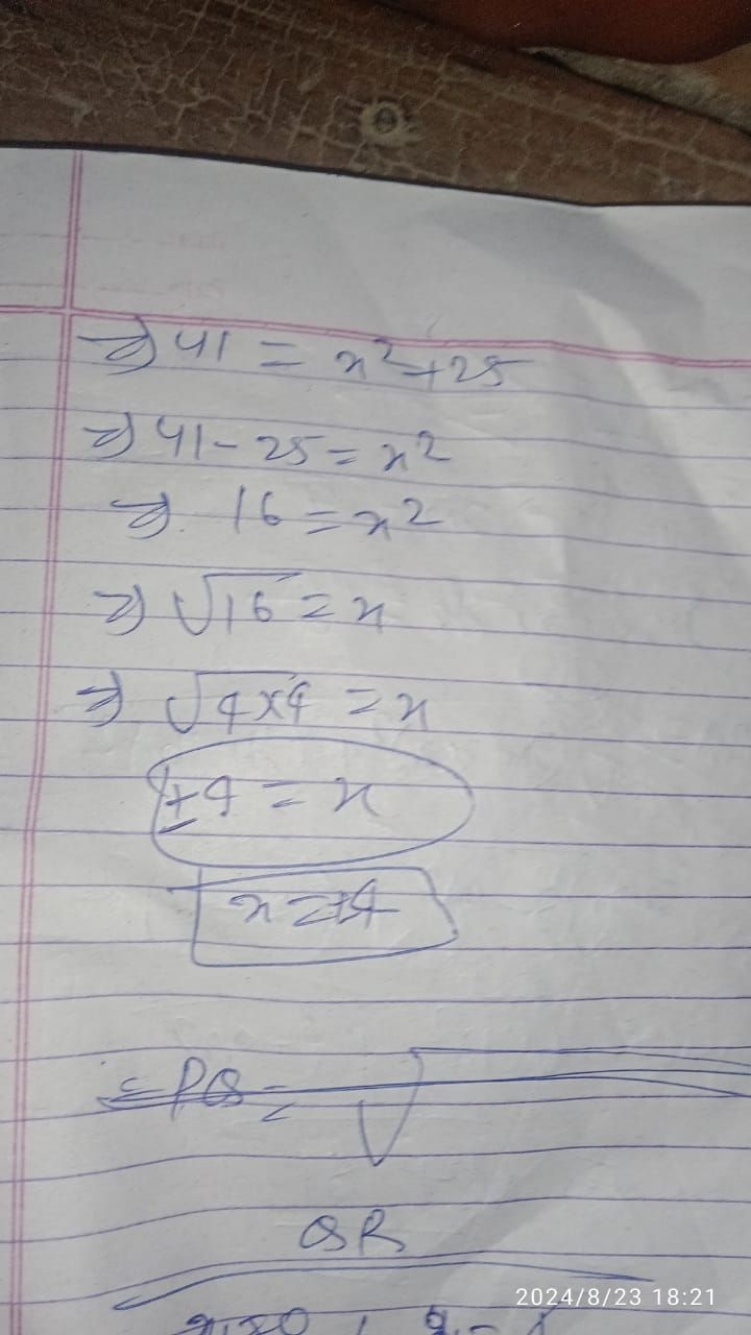 ⇒ 41 = x²+25
⇒ 41-25 = x²
⇒ 16 = x²
⇒ √16 = x
⇒ √4×4 = x
±4 = x
x = ±4
= PQ = √
QR
2024/8/23 18:21